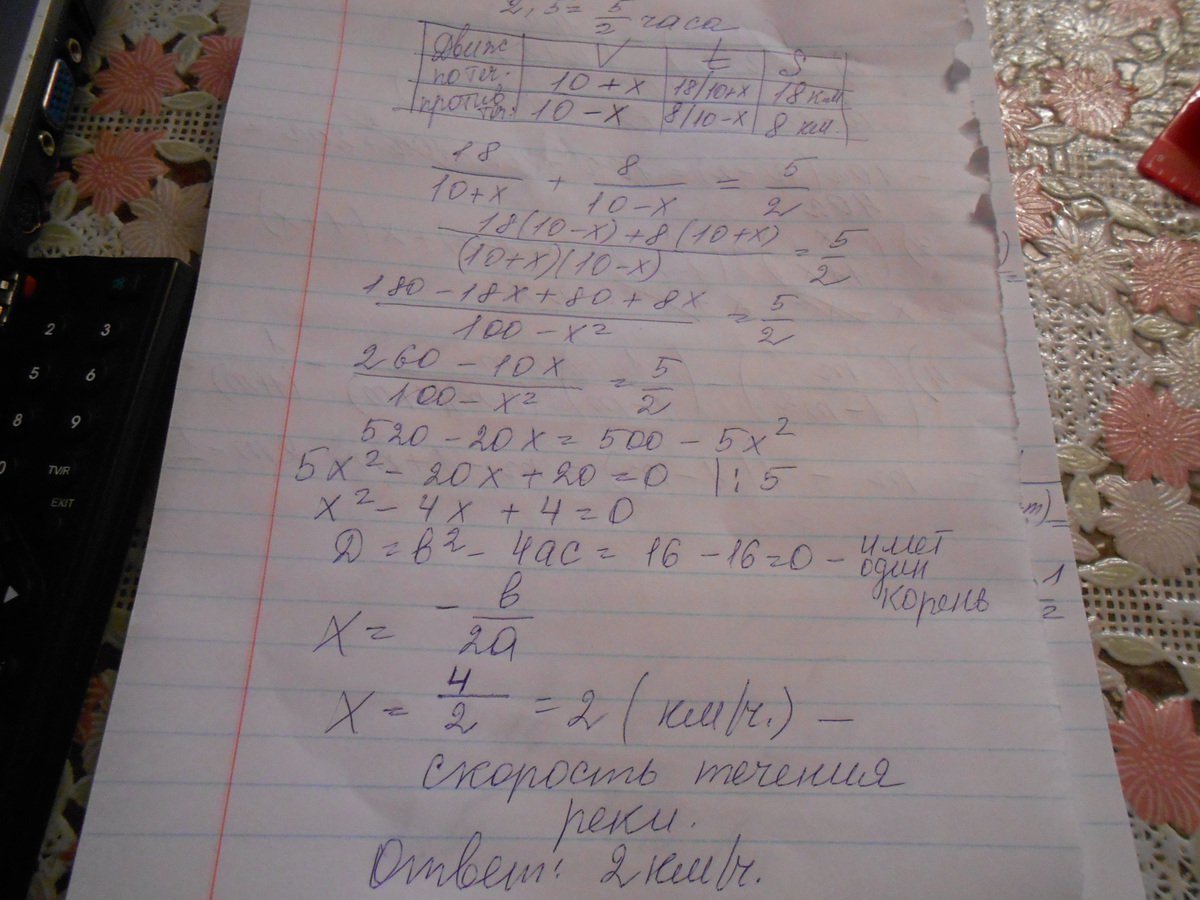 2,5 = 5/2 часа
Движ V t S
по теч. 10+x 18/10+x 18 км
против теч. 10-x 8/10-x 8 км.
18/10+x + 8/10-x = 5/2
18(10-x)+8(10+x)/(10+x)(10-x) = 5/2
180-18x+80+8x/100-x² = 5/2
260-10x/100-x² = 5/2
520-20x = 500-5x²
5x²-20x+20=0 |:5
x²-4x+4=0
D = b²-4ac = 16-16=0 - имет один корень
x = -b/2a
x = 4/2 = 2 (км/ч.) —
скорость течения
реки.
Ответ: 2км/ч.
2 3
5 6
8 9
0 TV/R
EXIT